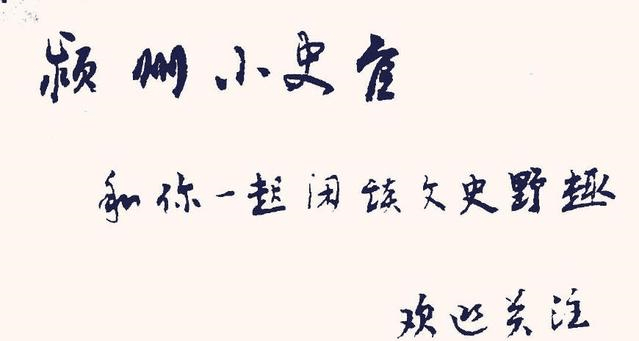 颍州小史官
和你一起闲谈文史野趣
欢迎关注